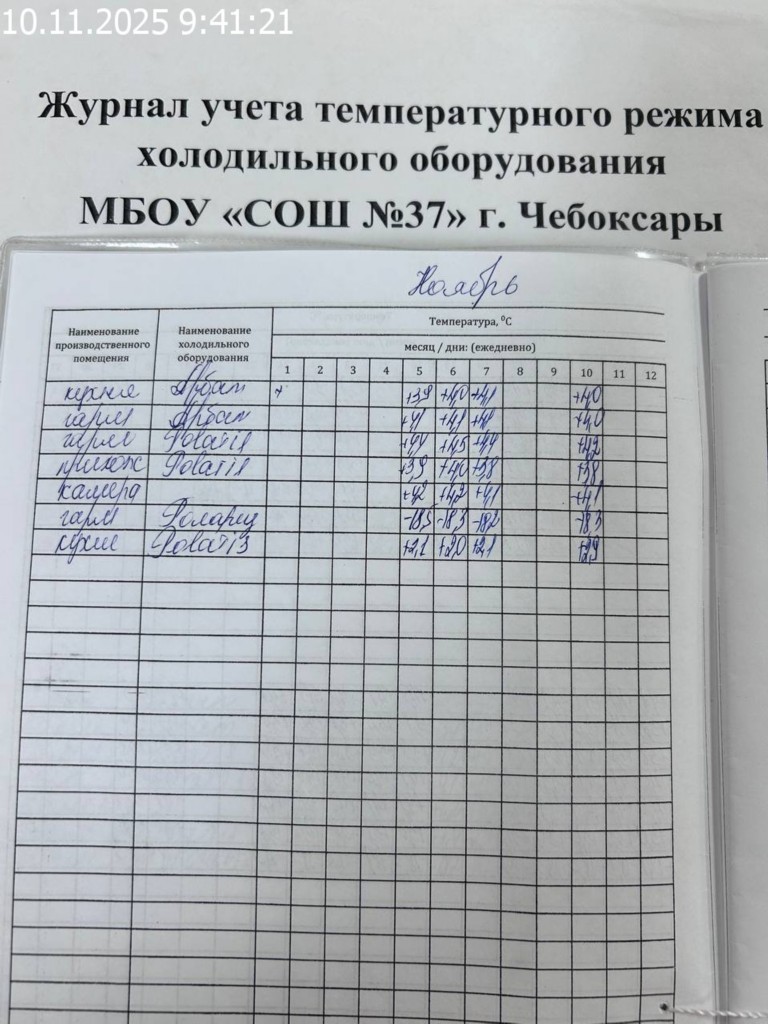 10.11.2025 9:41:21
Журнал учета температурного режима
холодильного оборудования
МБОУ «СОШ №37» г. Чебоксары
Ноябрь
Наименование производственного помещения
Наименование холодильного оборудования
Температура, ⁰С
месяц / дни: (ежедневно)
1 2 3 4 5 6 7 8 9 10 11 12
кухня +39 +40 +41 +40
+41 +41 +40
Polair +44 +45 +44 +42
Polair +39 +40 +38 +38
камера +42 +42 +41 +41
-185 -183 -182 -183
Polair +21 +20 +21